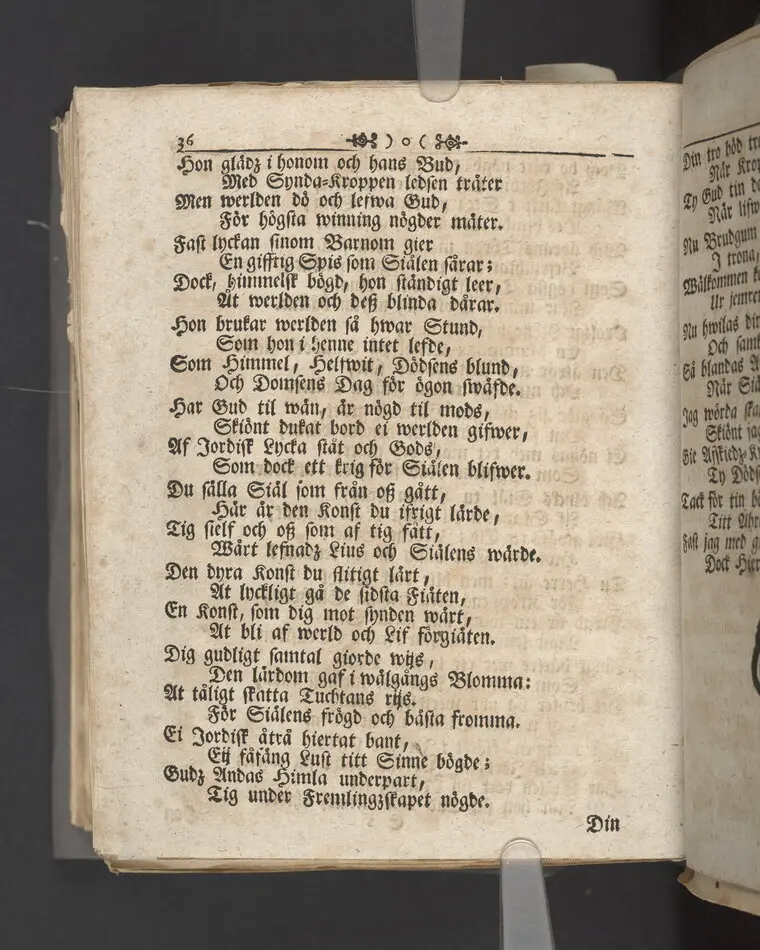 36 ) o (
Hon glädz i honom och hans Bud,
Med Synda-Kroppen ledsen träter
Men werlden dö och lefwa Gud,
För högsta winning nögder mäter.
Fast lyckan sinom Barnom gier
En gifftig Spis som Siälen sårar;
Dock, himmelsk bögd, hon ständigt leer,
Åt werlden och deß blinda dårar.
Hon brukar werlden så hwar Stund,
Som hon i henne intet lefde,
Som Himmel, Helfwit, Dödsens blund,
Och Domsens Dag för ögon swäfde.
Har Gud til wän, är nögd til mods,
Skiönt dukat bord ei werlden gifwer,
Af Jordisk Lycka ståt och Gods,
Som dock ett krig för Siälen blifwer.
Du sälla Siäl som från oß gått,
Här är den Konst du ifrigt lärde,
Tig sielf och oß som af tig fått,
Wårt lefnadz Lius och Siälens wärde.
Den dyra Konst du flitigt lärt,
At lyckligt gå de sidsta Fiäten,
En Konst, som dig mot synden wärt,
At bli af werld och Lif förgiäten.
Dig gudligt samtal giorde wijs,
Den lärdom gaf i wälgångs Blomma:
At tåligt skatta Tuchtans rijs.
För Siälens frögd och bästa fromma.
Ei Jordisk åtrå hiertat bant,
Eij fåfäng Lust titt Sinne bögde;
Gudz Andas Himla underpart,
Tig under Fremlingzskapet nögde.
Din
Din tro
När
Ty Gud tin
När
Nu Brudgum
J trona,
Wälkommen
Ur
Nu hwilas
Och
Så blandas
När
Jag wörda
Skiönt
Ty
Tack för tin
Titt
Fast jag med
Dock